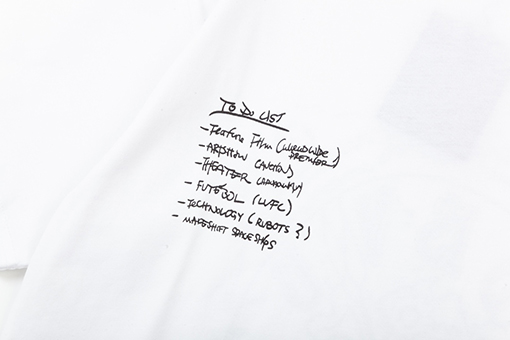 TO DO LIST
- Feature Film (WORLDWIDE PREMIER)
- ARTSHOW
- THEATER
- FUTEBOL (LVFC)
- TECHNOLOGY (ROBOTS?)
- MAKESHIFT SPACESHIPS